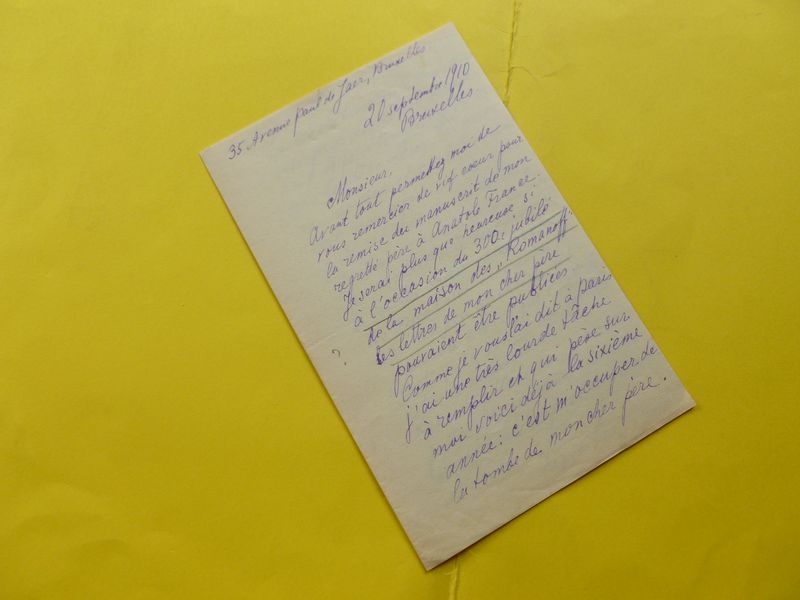 35 Avenue Paul de Jaer, Bruxelles.
20 septembre 1910
Bruxelles
Monsieur,
Avant tout permettez moi de
vous remercier de vif coeur pour
la remise du manuscrit de mon
regretté père à Anatole France.
Je serai plus que heureuse si
à l'occasion du 300e jubilé
de la maison des „Romanoff"
les lettres de mon cher père
pouvaient être publiées
Comme je vous l'ai dit à Paris
j'ai une très lourde tâche
à remplir et qui père sur
moi voici déjà la sixième
année: c'est m'occuper de
la tombe de mon cher père.
?